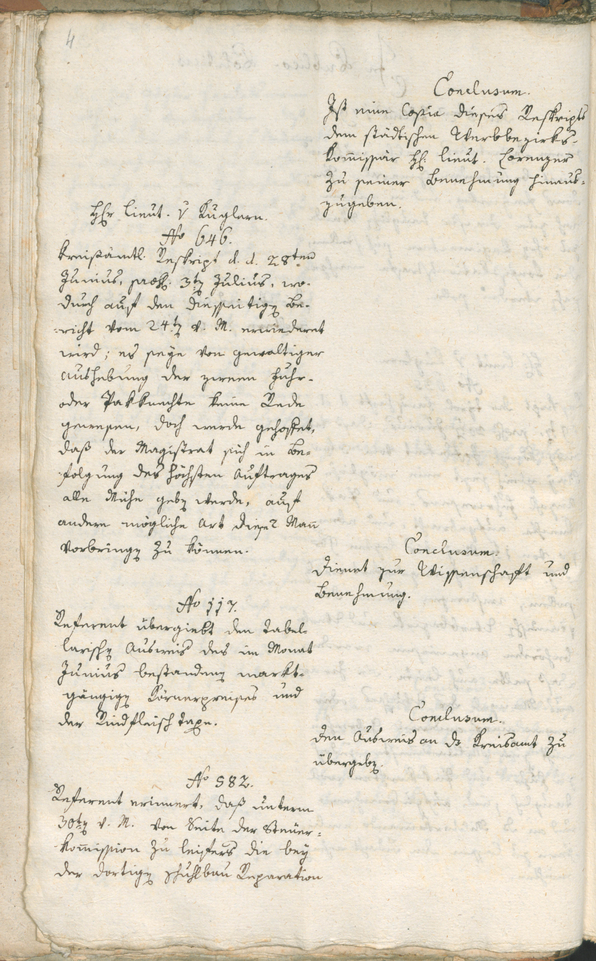 4
Conclusum.
Ist eine Copia dieses Reskripts
dem städtischen Werbbezirks-
Kom̄issär H. lieut. Lorenzer
zu seiner Benehmung hinaus-
zugeben.
Hhr. Lieut. v Kuglarn.
No 646.
Kreisämtl. Reskript d. d. 28ten
Junius, 3tn Julius, wo-
durch auf den diesseitign Be-
richt vom 24tn v. M. erwiedert
wird; es seye von gewaltiger
aushebung der zween Fuhr-
oder Pakknechte keine Rede
gewesen, doch werde gehoffet,
daß der Magistrat sich in Be-
folgung des höchsten Auftrages
alle Mühe gebn werde, auf
andere mögliche Art diese 2 Man̄
vorbringn zu können.
Conclusum.
Dienet zur Wissenschaft und
Benehmung.
No 117.
Referent übergiebt den tabel-
larischn Ausweis des im Monat
Junius bestandenen markt-
gängign Körnerpreises und
der Rindfleisch taxe.
Conclusum.
den Ausweis an ds Kreisamt zu
übergebn.
No 582.
Referent erinnert, daß unterm
30tn v. M. von Seite der Steuer-
Kom̄ission zu leifers die bey
der dortign schuhlbau Reparation